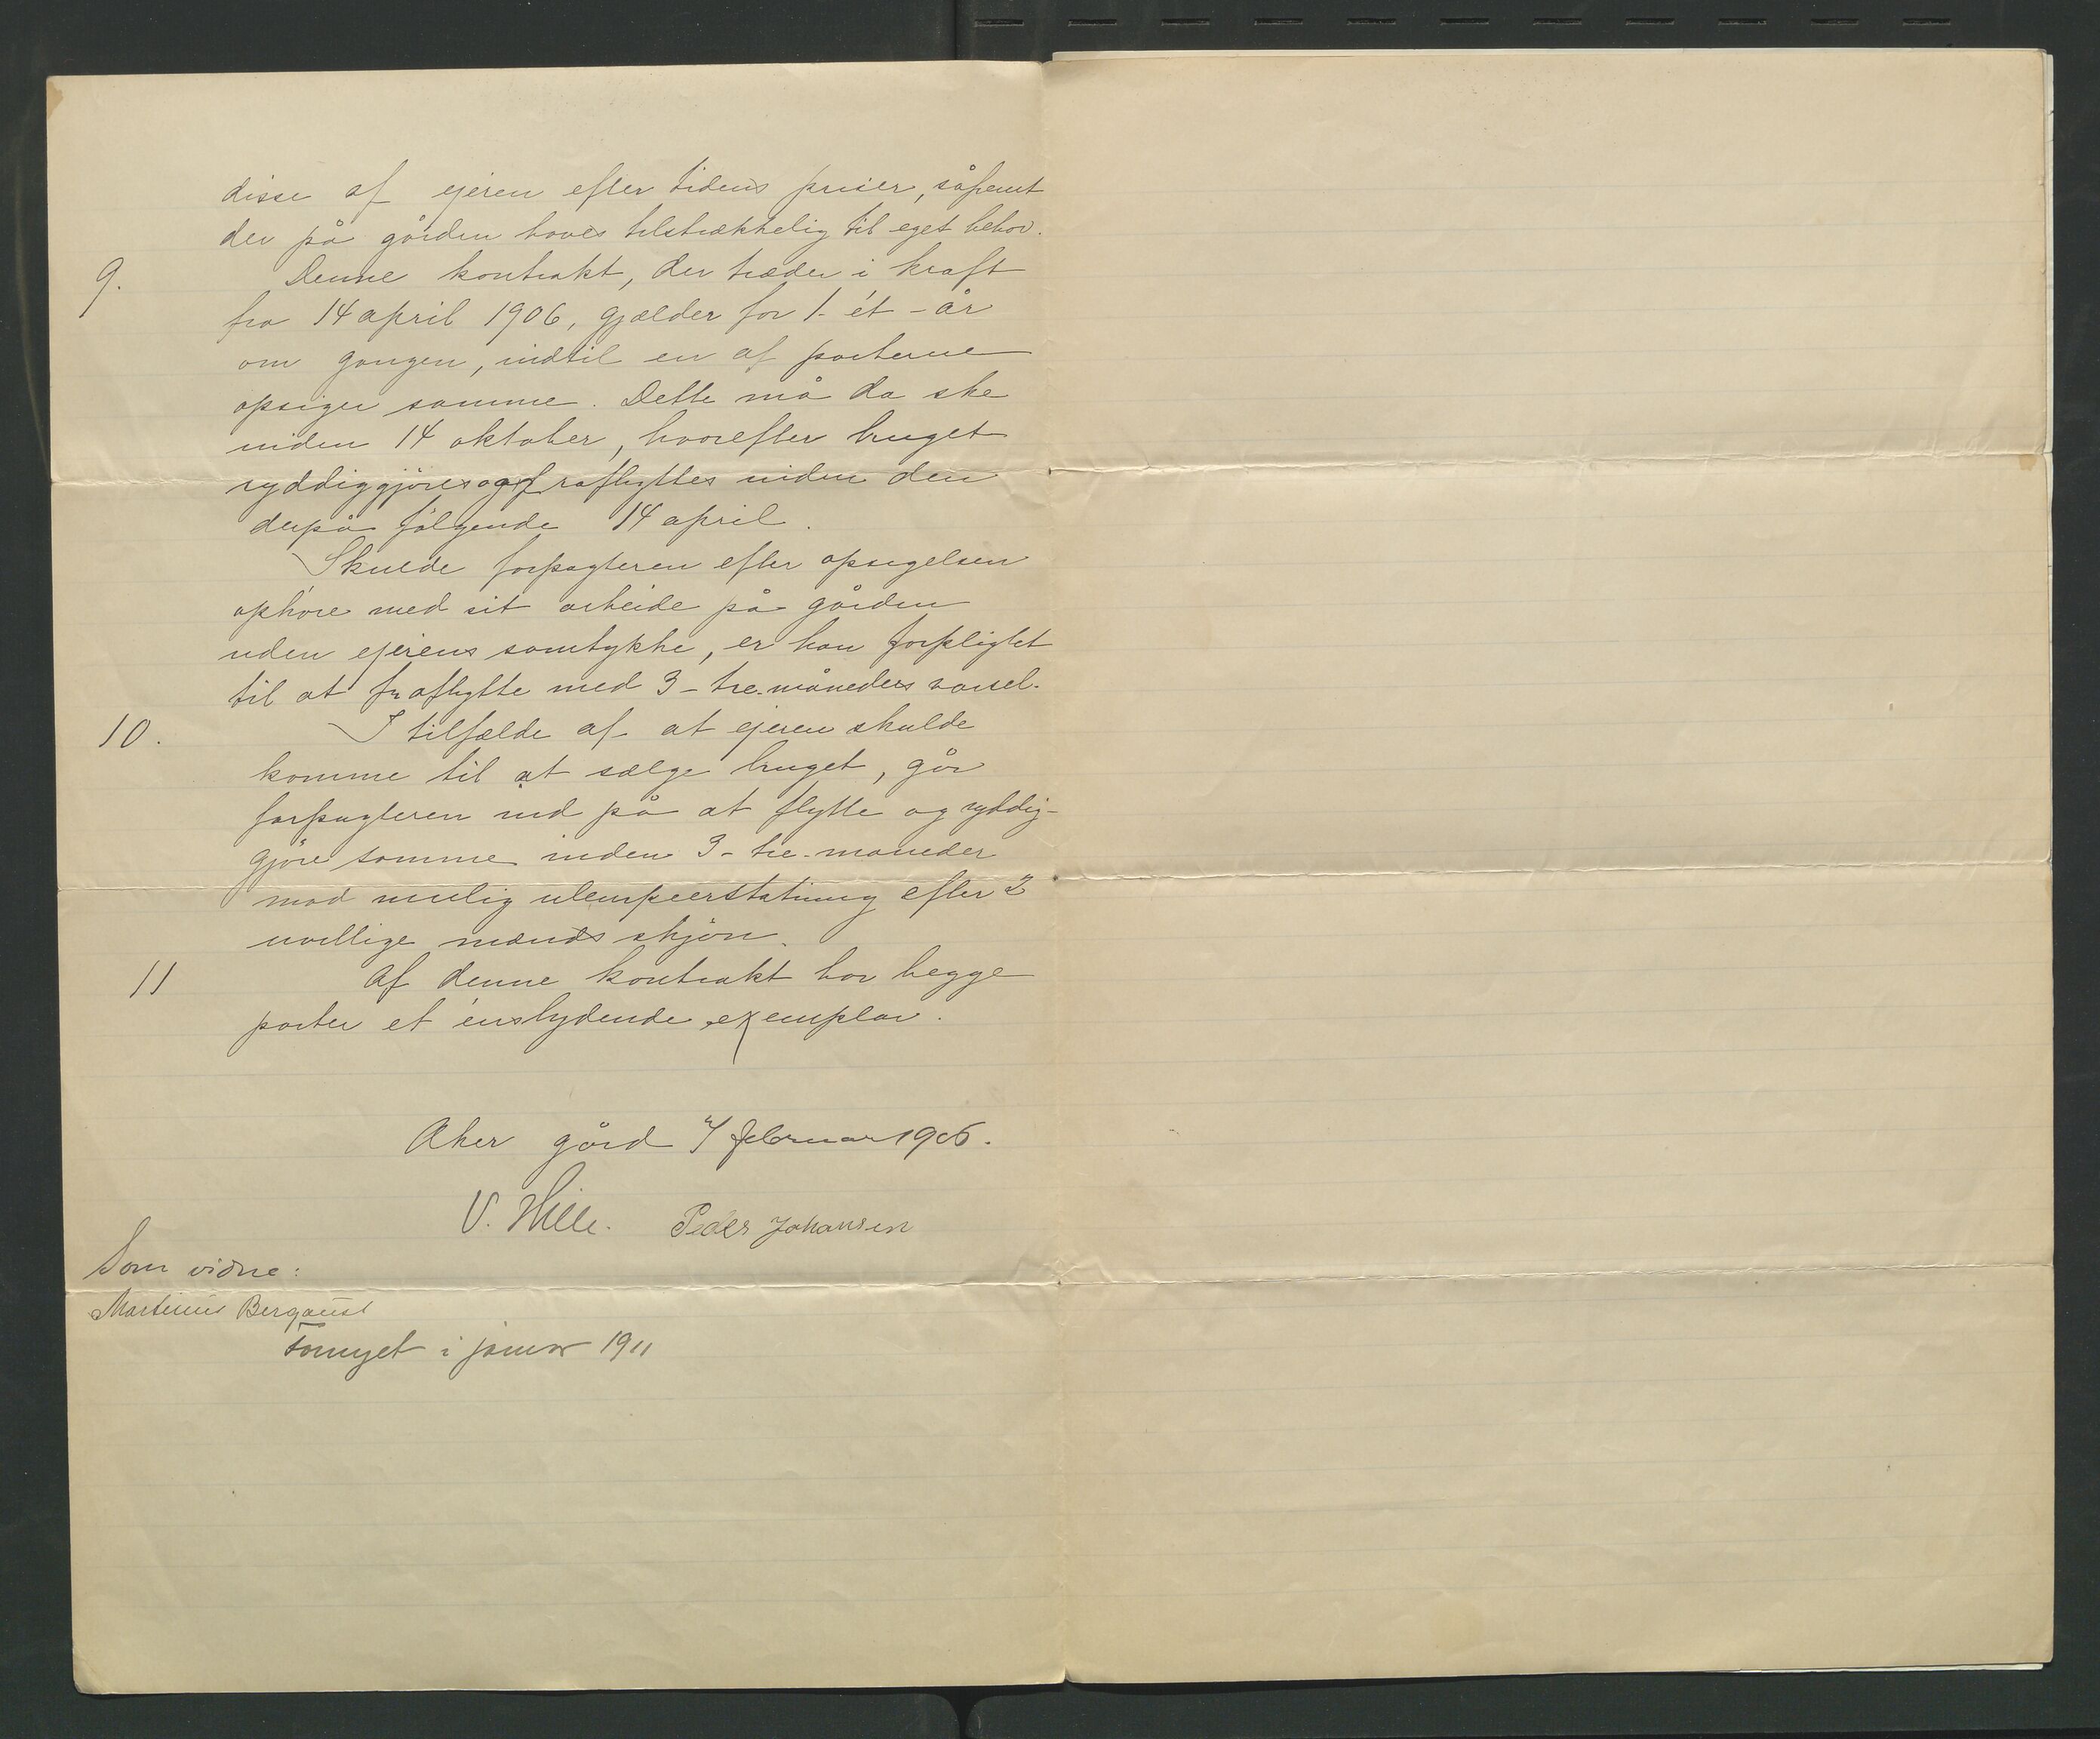 disse af ejeren efter tidens priser, såfremt
der på gården haves tilstrækkelig til eget behov.
9. Denne kontrakt, der træder i kraft
fra 14 april 1906, gjælder for 1 - ét - år
om gangen, indtil en af parterne
opsiger samme. Dette må da ske
inden 14 oktober, hvorefter bruget
ryddiggjöres og fraflyttes inden den
derpå fölgende 14 april.
Skulde forpagteren efter opsigelsen
ophöre med sit arbeide på gården
uden ejerens samtykke, er han forpligtet
til at fraflytte med 3 - tre - måneders varsel.
10. I tilfælde af at ejeren skulde
komme til at sælge bruget, går
forpagteren ind på at flytte og ryddig-
gjöre samme inden 3 - tre - måneder
mod mulig ulempeerstatning efter 2
uvillige mænds skjön.
11 Af denne kontrakt har begge
parter et énslydende exemplar.
Aker gård 7 februar 1906.
V. Hille. Peder Johansen
Som vidne:
Martinius Bergaust
Fornyet i januar 1911